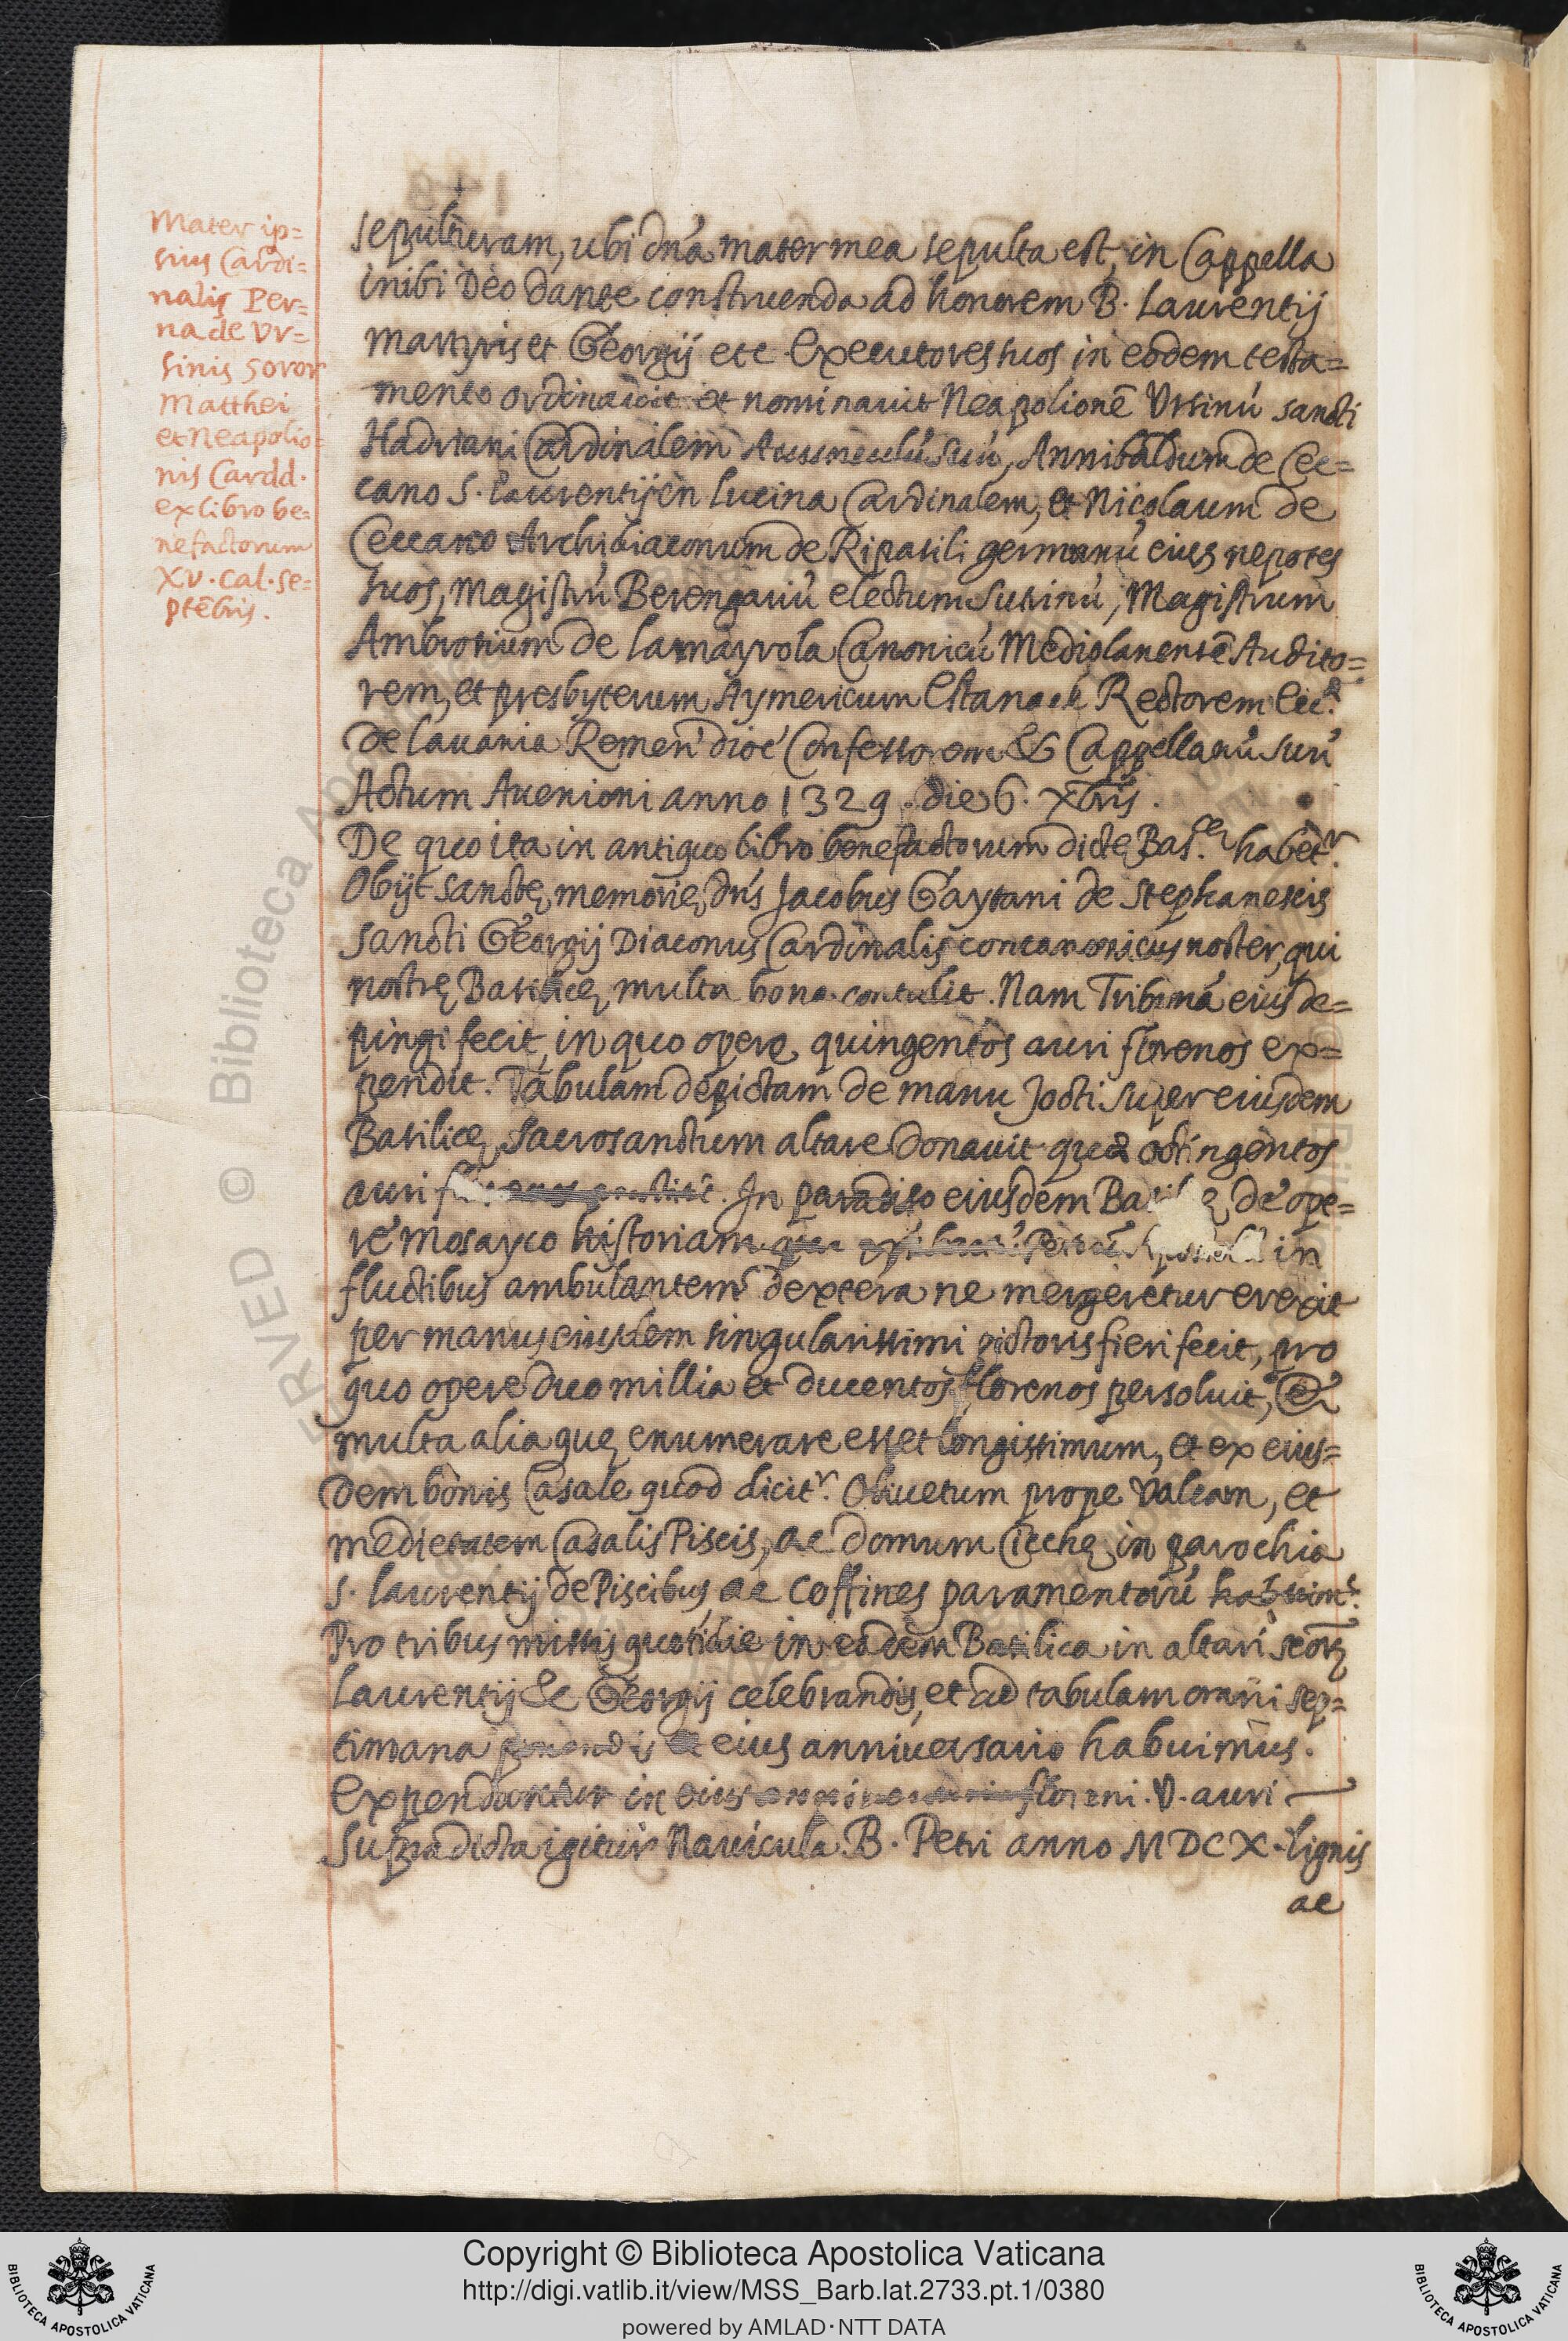 Mater ip=
sius Cardi=
nalis Per=
na de Vr=
sinis soror
Matthei
et Neapolio=
nis Cardd.
ex libro be=
nefactorum
XV. cal. se=
ptẽbris.
sepulturam, ubi dn̄a mater mea sepulta est, in Cappella
inibi Deo dante construenda ad honorem B. Laurentij
martyris et Georgij etc Executores suos in eodem testa=
mento ordinauit et nominauit Neapolionē Vrsinū sancti
Hadriani Cardinalem Auunculū suū, Annibaldum de Cec=
cano S. Laurentij in lucina Cardinalem, et Nicolaum de
Ceccano Archidiaconum de Ripasili germanū eius nepotes
suos, Magistrū Berengariū electum Sutrinū, Magistrum
Ambrosium de lamayrola Canonicū Mediolanensē Audito=
rem, et presbyterum Aymericum Rectorem
de lauania Remen̄ dioc̄ Confessorem & Cappellanū suū
Actum Auenioni anno 1329. die 6. Xbris.
De quo ita in antiquo libro benefactorum dictę Bas.cę habetr.
Obijt sanctę memorię dn̄s Jacobus Gaytani de Stephanescis
Sancti Georgij Diaconus Cardinalis concanonicus noster, qui
nostrę Basilicę multa bona contulit. Nam Tribunā eius de=
pingi fecit, in quo opere quingentos auri florenos ex=
pendit. Tabulam depictam de manu Jocti super eiusdem
Basilicę sacrosanctum altare donauit quę octingentos
auri In paradiso eiusdem de ope=
re mosayco historiam in
fluctibus ambulantem dextera ne mergeretur erexit
per manus eiusdem singularissimi pictoris fieri fecit, pro
quo opere duo millia et ducentos florenos persoluit, &
multa alia quę enumerare esset longissimum, et ex eius=
dem bonis Casale quod dicitr. Oliuetum prope Valcam, et
medietatem Casalis Piscis, ac domum Cecchę in parochia
S. laurentij de Piscibus, ac Coffines paramentorū
Pro tribus missis quotidie in eadem Basilica in altari sctorum
Laurentij & Georgij celebrandis, et ad tabulam omni sep=
timana eius anniuersario habuimus.
Expenduntur in eius floreni. V. auri
Supradicta igitur Nauicula B. Petri anno MDCX. lignis
ac
© Biblioteca Apostolica
Copyright © Biblioteca Apostolica Vaticana
http://digi.vatlib.it/view/MSS_Barb.lat.2733.pt.1/0380
powered by AMLAD·NTT DATA
BIBLIOTECA APOSTOLICA VATICANA
BIBLIOTECA APOSTOLICA VATICANA